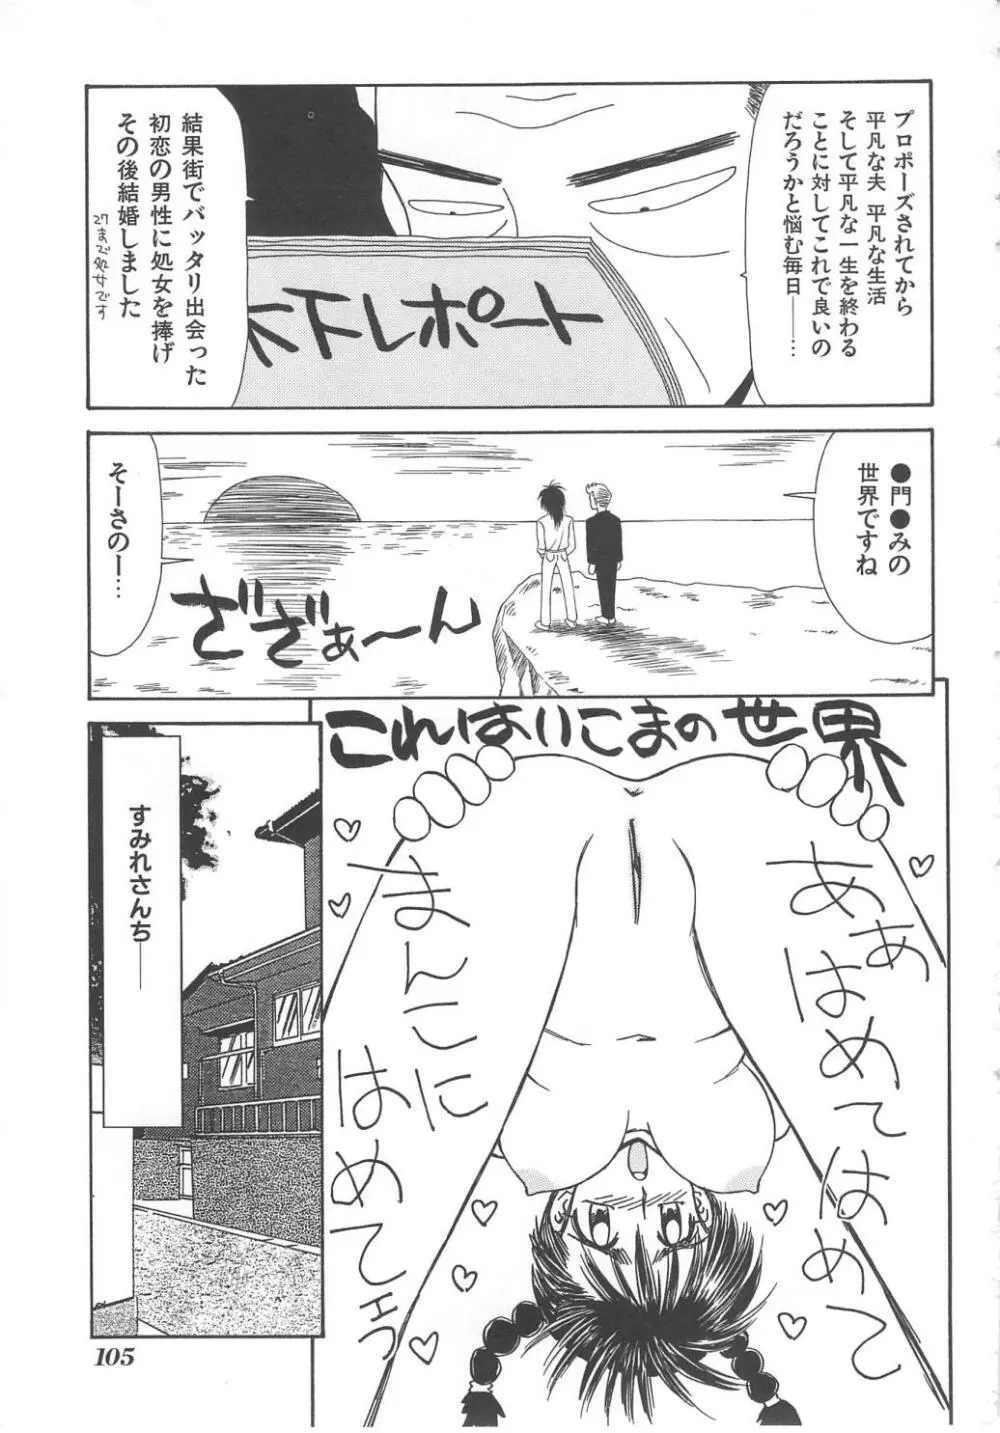 プロポーズされてから
平凡な夫 平凡な生活
そして平凡な一生を終わる
ことに対してこれで良いの
だろうかと悩む毎日――…
木下レポート
結果街でバッタリ出会った
初恋の男性に処女を捧げ
その後結婚しました
27まで処女です
●門●みの
世界ですね
そーさのー…
ざざざぁ〜〜ん
これはいこまの世界
ああ
あはめてはめて
まんこに
はめてェっ
すみれさんち――
105